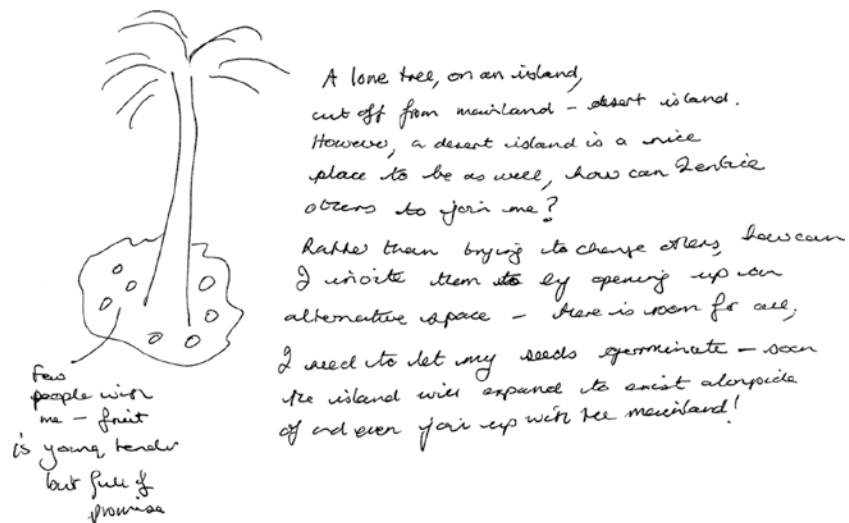 A lone tree, on an island,
cut off from mainland – desert island.
However, a desert island is a nice
place to be as well, how can I entice
others to join me?
Rather than trying to change others, how can
I invite them to by opening up an
alternative space – there is room for all,
I need to let my seeds germinate – soon
the island will expand to exist alongside
of and even join up with the mainland!
Few
people with
me – fruit
is young tender
but full of
promise